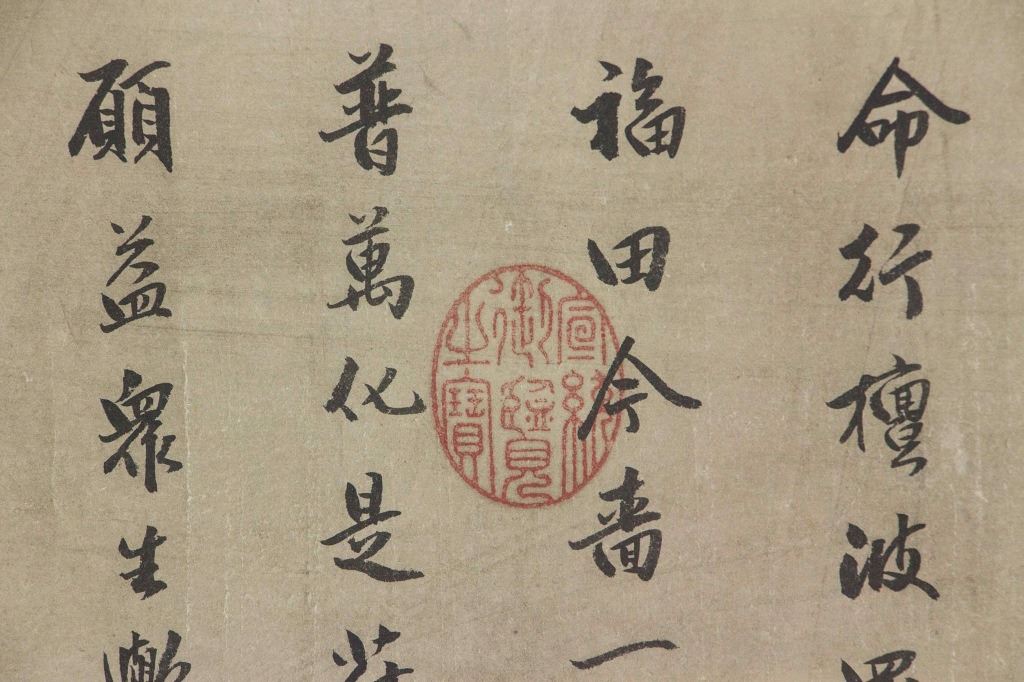 命行檀波羅
福田今嗇一
普萬化是莊
願益眾生漸
宣統御覽之寶